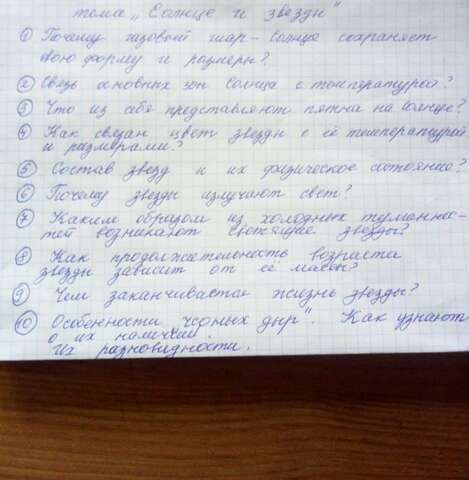 тема „Солнце и звезды"
① Почему газовый шар - Солнце сохраняет
свою форму и размеры?
② Связь основных зон Солнца с температурой?
③ Что из себя представляют пятна на Солнце?
④ Как связан цвет звезды с её температурой
и размерами?
⑤ Состав звезд и их физическое состояние?
⑥ Почему звезды излучают свет?
⑦ Каким образом из холодных туманнос-
тей возникают светящие звезды?
⑧ Как продолжительность возраста
звезды зависит от её массы?
⑨ Чем заканчивается жизнь звезды?
⑩ Особенности „черных дыр". Как узнают
о их наличии
Их разновидности.